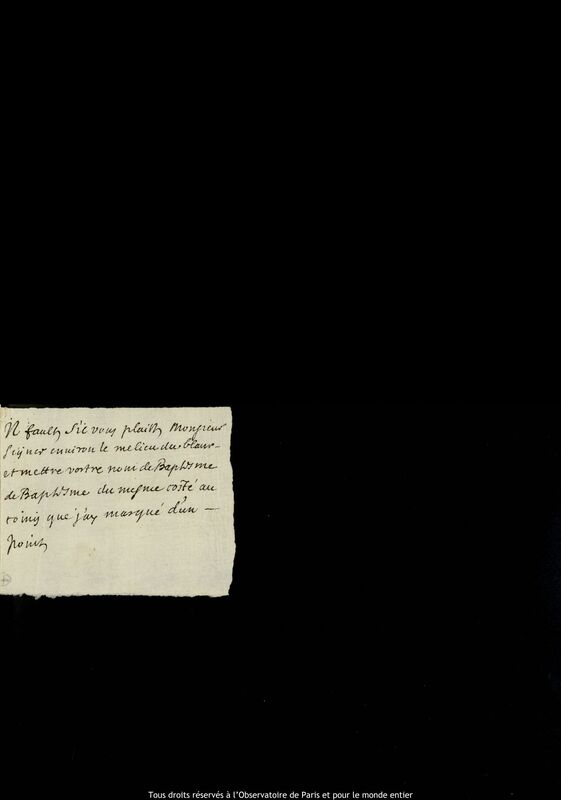 Il fault s'il vous plaist Monsieur
signer environ le melieu du blanc
et mettre vostre nom de Baptesme
de Baptesme du mesme costé au
coing que j'ay marqué d'un —
point
Tous droits réservés à l'Observatoire de Paris et pour le monde entier